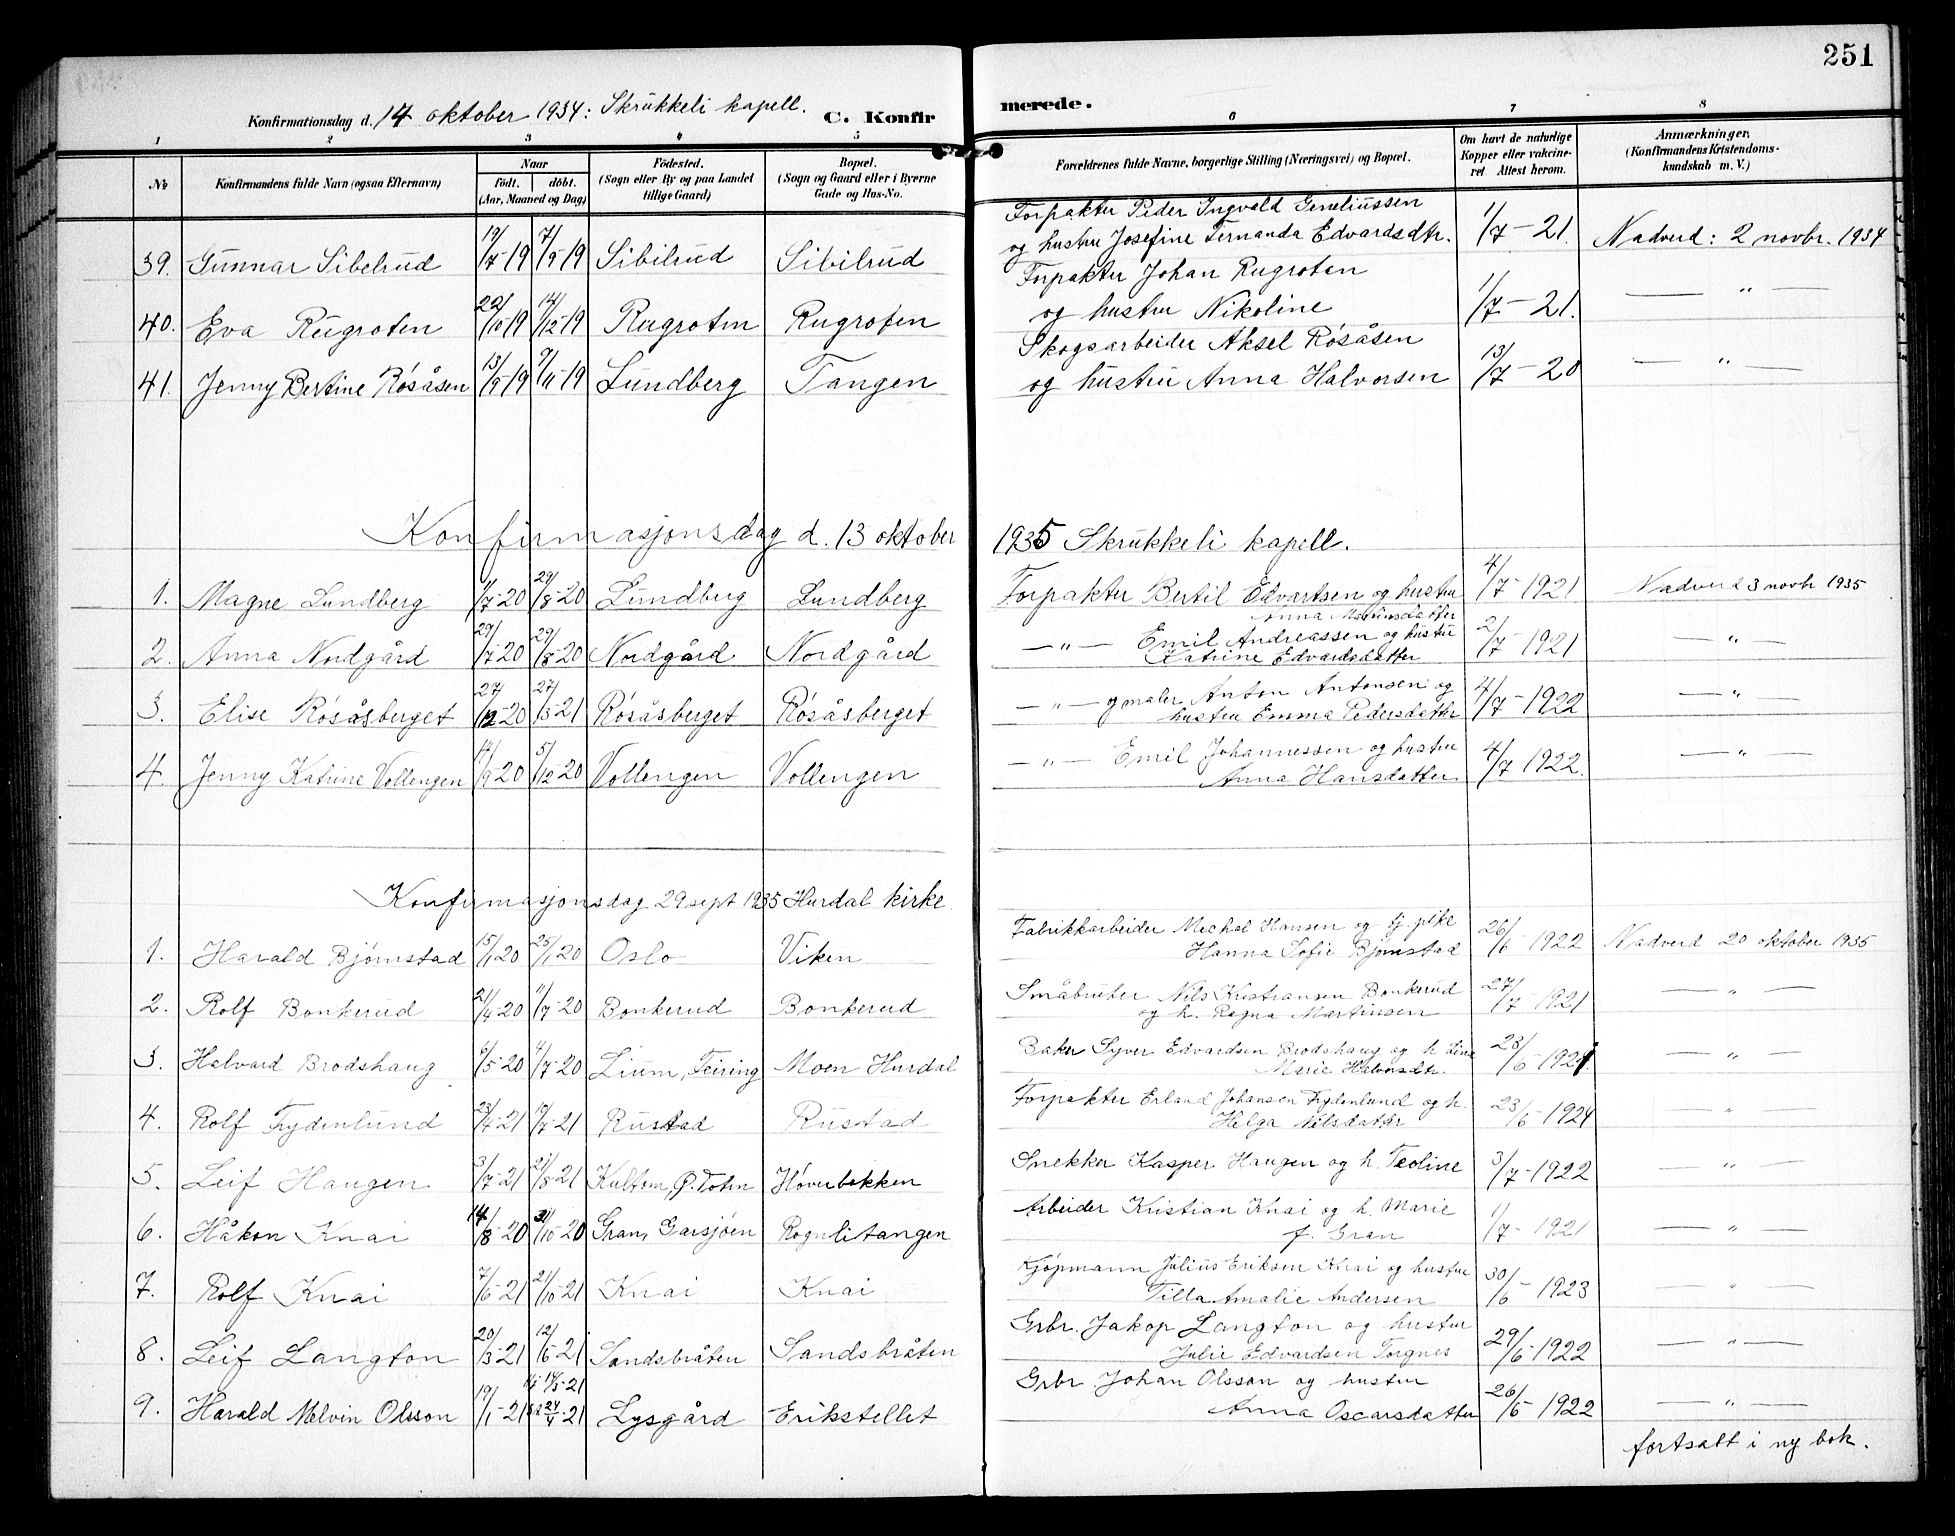 251
Konfirmationsdag d. 14 oktober 1934: Skrukkeli kapell. C. Konfirmerede.
1 2 3 4 5 6 7 8
No Konfirmandens fulde Navn (ogsaa Efternavn) Naar født. døbt. (Aar, Maaned og Dag) Fødested. (Sogn eller By og paa Landet tillige Gaard) Bopæl. (Sogn og Gaard eller i Byerne Gade og Hus-No. Forældrenes fulde Navne, borgerlige Stilling (Næringsvei) og Bopæl. Om havt de naturlige Kopper eller vakcineret Attest herom. Anmærkninger. (Konfirmandens Kristendomskundskab m. V.)
39. Gunnar Sibelrud 19/7-19 7/9 19 Sibilrud Sibilrud Forpakter Peder Ingvald Geneliussen og hustru Josefine Fernanda Edvardsdtr. 1/7-21 Nadverd: 2 novbr. 1934
40. Eva Rugroten 22/10-19 14/12-19 Rugroten Rugroten Forpakter Johan Rugroten og hustru Nikoline 1/7-21. — " —
41. Jenny Bertine Røsåsen 13/9-19 9/11-19 Lundberg Tangen Skogsarbeider Aksel Røsåsen og hustru Anna Halvorsen 13/7-20 — " —
Konfirmasjonsdag d. 13 oktober 1935 Skrukkeli kapell.
1. Magne Lundberg /7-20 29/8-20 Lundberg Lundberg Forpakter Bertil Edvartsen og hustru Anna 4/7-1921 Nadverd 3 novbr 1935
2. Anna Nordgård 29/7-20 29/8-20 Nordgård Nordgård — " — Emil Andreassen og hustru Katrine Edvardsdatter 2/7-1921 — " —
3. Elise Røsåsberget 27/12-20 27/3-21 Røsåsberget Røsåsberget — " — og maler Anton Antonsen og hustru Emma Pedersdatter 4/7-1922 — " —
4. Jenny Katrine Vollengen 14/9-20 5/12-20 Vollengen Vollengen — " — Emil Johannessen og hustru Anna Hansdatter 4/7 1922. — " —
Konfirmasjonsdag 29 sept 1935 Hurdal kirke
1. Harald Bjørnstad 15/1 20 25/1 20 Oslo Viken Fabrikkarbeider Mechal Hansen og tj. pike Hanna Sofie Bjørnstad 26/6-1922 Nadverd 20 oktober 1935
2. Rolf Bonkerud 21/4-20 11/7-20 Bonkerud Bonkerud Småbruker Nils Kristiansen Bonkerud og h. Ragna Martinsen 27/7-1921 — " —
3. Halvard Brodshaug 6/5-20 4/7-20 Lium, Feiring Moen Hurdal Baker Syver Edvardsen Brodshaug og h Lina Marie Halvorsdtr. 23/6-1921. — " —
4. Rolf Frydenlund 23/4-21 19/7-21 Rustad Rustad Forpakter Erland Johansen Frydenlund og h. Helga Nilsdatter 23/6-1924 — " —
5. Leif Haugen 3/7-21 21/8-21 Høverbekken Snekker Kasper Haugen og h. Teoline 3/7-1922 — " —
6. Håkon Knai 14/8-20 31/10-20 Gran, Garsjøen Rognlitangen Arbeider Kristian Knai og h. Marie f. Gran 1/7-1921 — " —
7. Rolf Knai 7/6-21 21/10-21 Knai Knai Kjøpmann Julius Eriksen Knai og hustru Tilla Amalie Andersen 30/6-1923 "
8. Leif Langton 20/3-21 12/6-21 Sandsbråten Sandsbråten Grbr. Jakop Langton og hustru Julie Edvardsen Torgnes 29/6-1922 — " —
9. Harald Melvin Olsson 19/1-21 24/4-21 Lysgård Erikstellet Grbr Johan Olsson og hustru Anna Oscarsdatter 26/6-1922 — " —
fortsatt i ny bok.